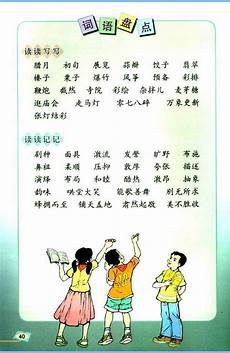 词语盘点
读读写写
腊月 初旬 展览 蒜瓣 饺子 翡翠
榛子 栗子 爆竹 风筝 预备 彩排
鞭炮 截然 寺院 彩绘 杂拌儿 麦芽糖
逛庙会 走马灯 零七八碎 万象更新
张灯结彩
读读记记
剧种 面具 激流 发髻 旷野 布施
鼻祖 柔顺 压抑 敦厚 夸张 描述
演绎 布局 酷热 激昂 抽象
韵味 哄堂大笑 能歌善舞 别无所求
蜂拥而至 铺天盖地 肃然起敬 美不胜收
40